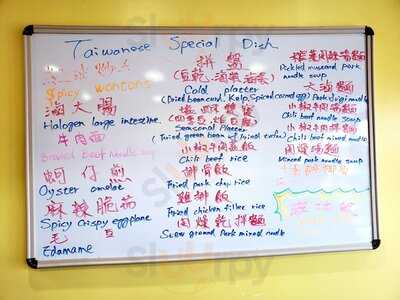 Taiwanese Special Dish
Spicy wontons
滷大腸
Halogen large intestine
牛肉麵
Braised Beef Noodle soup
蚵仔煎
Oyster omelet
麻辣脆茄
Spicy crispy eggplant
毛豆
Edamame
拼盤
Cold platter
(Dried bean curd, Kelp, Spiced corned egg)
Seasonal Platter
小椒牛肉蓋飯
Chili beef rice
排骨飯
Fried pork chop rice
雞排飯
Fried chicken fillet rice
肉燥乾拌麵
Stew ground Pork mixed noodle
榨菜肉絲湯麵
Pickled mustard pork
noodle soup
大滷麵
小椒牛肉湯麵
Chili beef noodle soup
小椒牛肉拌麵
Chili beef mixed noodle
肉燥湯麵
Minced pork noodle soup